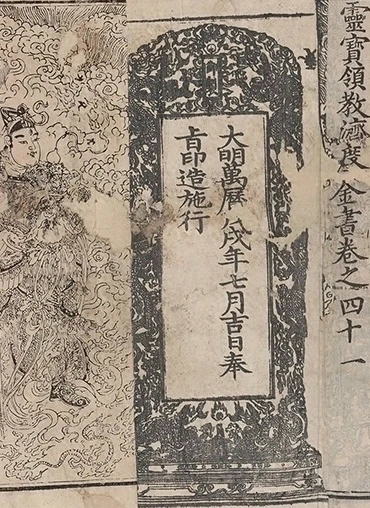 靈寶領教濟度金書卷之四十一
大明萬曆戊戌年七月吉日奉
旨印造施行